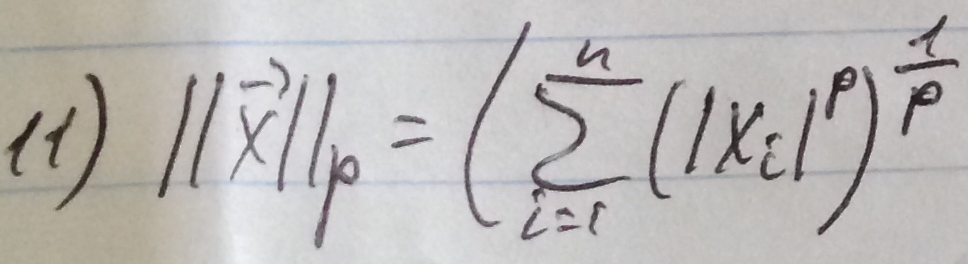 11) ||x⃗||ₚ = (∑ⁿᵢ₌₁ (|xᵢ|ᵖ)^(1/p)